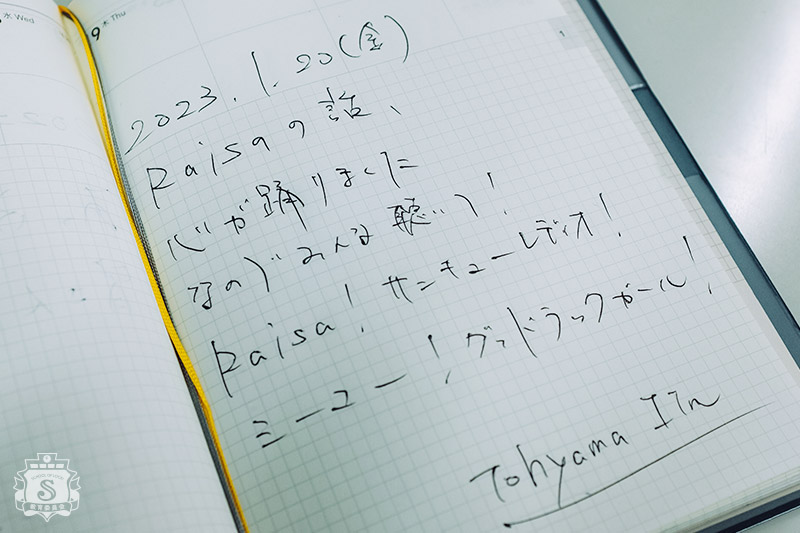 水 Wed
9 木 Thu
2023.1.20(金)
Raisaの話、
心が踊りました
なのでみんな聴こう!
Raisa! サンキューレディオ!
ミーユー! グッドラックガール!
Tohyama Iin
S